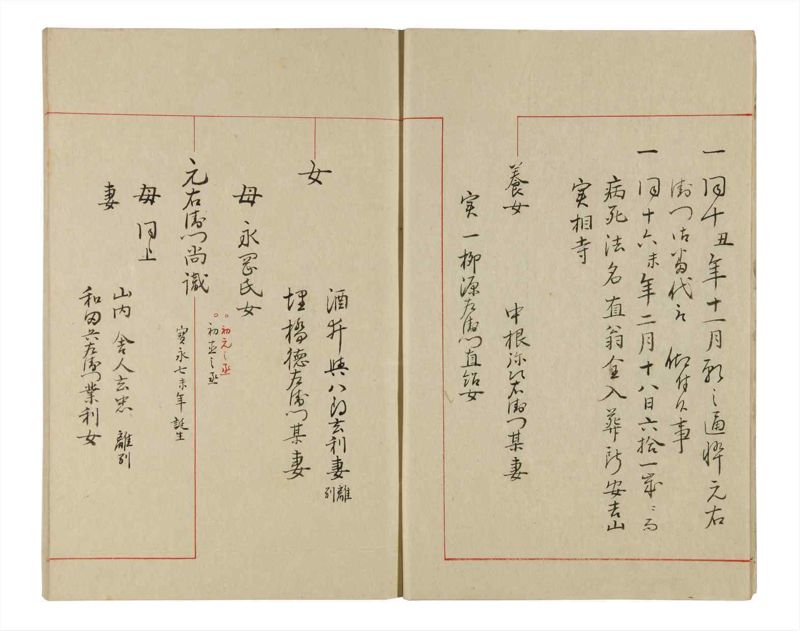 一同午丑年十一月願之通忰元右
衛門江当代被仰付候事
一同十六未年二月十八日六拾一歳ニ而
病死法名直翁全入葬所安吉山
実相寺
養女
中根弥次右衛門某妻
実一柳源左衛門直
女
女
酒井與八郎玄利妻
離別
埋橋徳左衛門某妻
母永
氏女
元右衛門尚識
初元之丞
初
之丞
寳永七未年誕生
母同上
妻
山内舎人玄忠離別
和田兵左衛門業利女